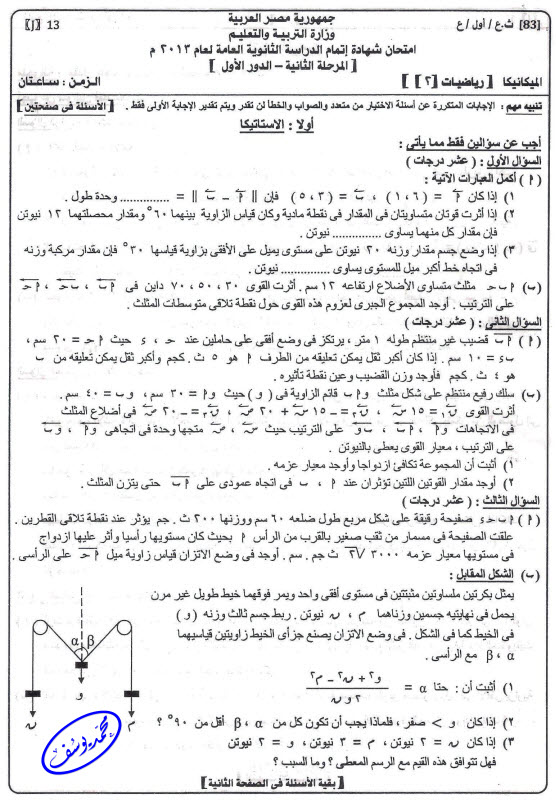 [83] ث.ع / أول / ع
جمهورية مصر العربية
وزارة التربية والتعليم
امتحان شهادة إتمام الدراسة الثانوية العامة لعام ٢٠١٣ م
[ المرحلة الثانية – الدور الأول ]
〔J〕 13
الميكانيكا [ رياضيات [٢] ]
الزمن : ساعتان
تنبيه مهم : الإجابات المتكررة عن أسئلة الاختيار من متعدد والصواب والخطأ لن تقدر ويتم تقدير الإجابة الأولى فقط .
[الأسئلة فى صفحتين]
أولا : الاستاتيكا
أجب عن سؤالين فقط مما يأتى :
السؤال الأول : ( عشر درجات )
( أ ) أكمل العبارات الآتية :
١) إذا كان أ = ( ٦ ، ١ ) ، ب = ( ٣ ، ٥ ) فإن || أ – ب || = ........... وحدة طول .
٢) إذا أثرت قوتان متساويتان فى المقدار فى نقطة مادية وكان قياس الزاوية بينهما ٦٠° ومقدار محصلتهما ١٢ نيوتن
فإن مقدار كل منهما يساوى ............... نيوتن .
٣) إذا وضع جسم مقدار وزنه ٢٠ نيوتن على مستوى يميل على الأفقى بزاوية قياسها ٣٠° فإن مقدار مركبة وزنه
فى اتجاه خط أكبر ميل للمستوى يساوى .............. نيوتن .
(ب) أ ب ح مثلث متساوى الأضلاع ارتفاعه ١٢ سم . أثرت القوى ٣٠ ، ٥٠ ، ٧٠ داين فى أ ب ، ب ح ، أ ح
على الترتيب . أوجد المجموع الجبرى لعزوم هذه القوى حول نقطة تلاقى متوسطات المثلث .
السؤال الثانى : ( عشر درجات )
( أ ) أ ب قضيب غير منتظم طوله ١ متر ، يرتكز فى وضع أفقى على حاملين عند ح ، ء حيث أ ح = ٢٠ سم ،
ب ء = ١٠ سم . إذا كان أكبر ثقل يمكن تعليقه من الطرف أ هو ٥ ث . كجم وأكبر ثقل يمكن تعليقه من ب
هو ٤ ث . كجم فأوجد وزن القضيب وعين نقطة تأثيره .
(ب) سلك رفيع منتظم على شكل مثلث و أ ب قائم الزاوية فى ( و ) حيث و أ = ٣٠ سم ، و ب = ٤٠ سم .
أثرت القوى ق١ = ١٥ س ، ق٢ = – ١٥ س + ٢٠ ص ، ق٣ = – ٢٠ ص فى أضلاع المثلث
فى الاتجاهات و أ ، أ ب ، ب و على الترتيب حيث س ، ص متجها وحدة فى اتجاهى و أ ، و ب
على الترتيب ، معيار القوى يعطى بالنيوتن .
١) أثبت أن المجموعة تكافئ ازدواجا وأوجد معيار عزمه .
٢) أوجد مقدار القوتين اللتين تؤثران عند أ ، ب فى اتجاه عمودى على أ ب حتى يتزن المثلث .
السؤال الثالث : ( عشر درجات )
( أ ) أ ب ح ء صفيحة رقيقة على شكل مربع طول ضلعه ٦٠ سم ووزنها ٢٠٠ ث . جم يؤثر عند نقطة تلاقى القطرين .
علقت الصفيحة فى مسمار من ثقب صغير بالقرب من الرأس أ بحيث كان مستويها رأسيا وأثر عليها ازدواج
فى مستويها معيار عزمه ٣٠٠٠ √٢ ث جم . سم . أوجد فى وضع الاتزان قياس زاوية ميل أ ح على الرأسى .
(ب) الشكل المقابل :
يمثل بكرتين ملساوتين مثبتتين فى مستوى أفقى واحد ويمر فوقهما خيط طويل غير مرن
يحمل فى نهايتيه جسمين وزناهما م ، ن نيوتن . ربط جسم ثالث وزنه ( و )
فى الخيط كما فى الشكل . فى وضع الاتزان يصنع جزأى الخيط زاويتين قياسيهما
β ، α مع الرأسى .
١) أثبت أن : حتا α = (و٢ + ن٢ – م٢) / (٢ و ن)
٢) إذا كان و > صفر ، فلماذا يجب أن تكون كل من β ، α أقل من ٩٠° ؟
٣) إذا كان ن = ٢ نيوتن ، م = ٣ نيوتن ، و = ٢ نيوتن
فهل تتوافق هذه القيم مع الرسم المعطى ؟ وما السبب ؟
α β
و
ن
م
محمد يوسف
[ بقية الأسئلة فى الصفحة الثانية ]